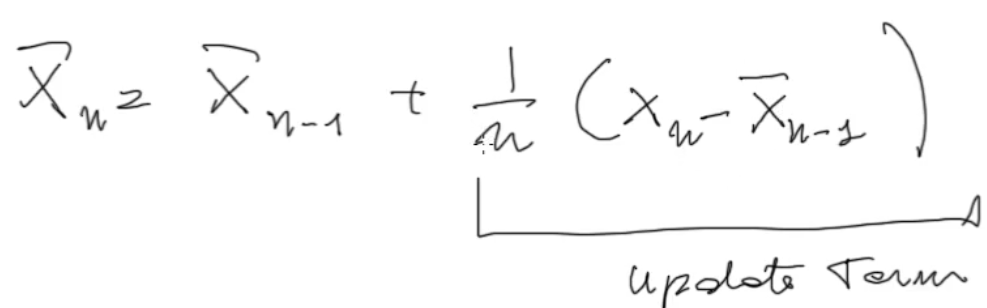 X̄ₙ = X̄ₙ₋₁ + 1/n (xₙ - X̄ₙ₋₁)
update Term